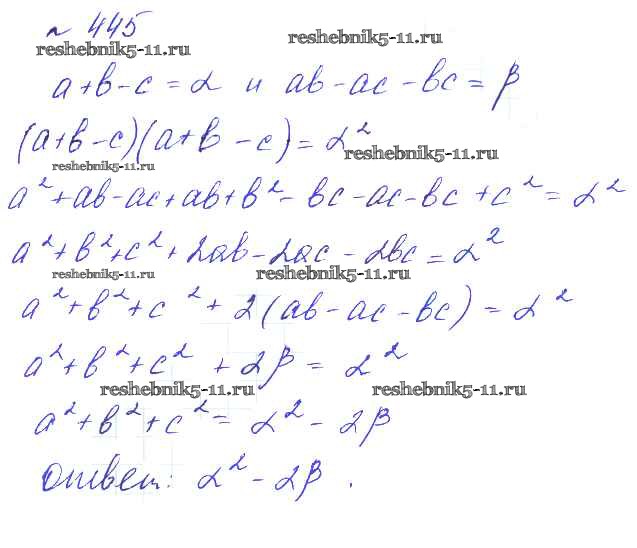 № 445
reshebnik5-11.ru
reshebnik5-11.ru
a+b-c = α и ab-ac-bc = β
(a+b-c)(a+b-c) = α²
reshebnik5-11.ru
reshebnik5-11.ru
a²+ab-ac+ab+b²-bc-ac-bc+c² = α²
a²+b²+c²+2ab-2ac-2bc = α²
reshebnik5-11.ru
reshebnik5-11.ru
a²+b²+c²+2(ab-ac-bc) = α²
a²+b²+c²+2β = α²
reshebnik5-11.ru
reshebnik5-11.ru
a²+b²+c² = α²-2β
Ответ: α²-2β.